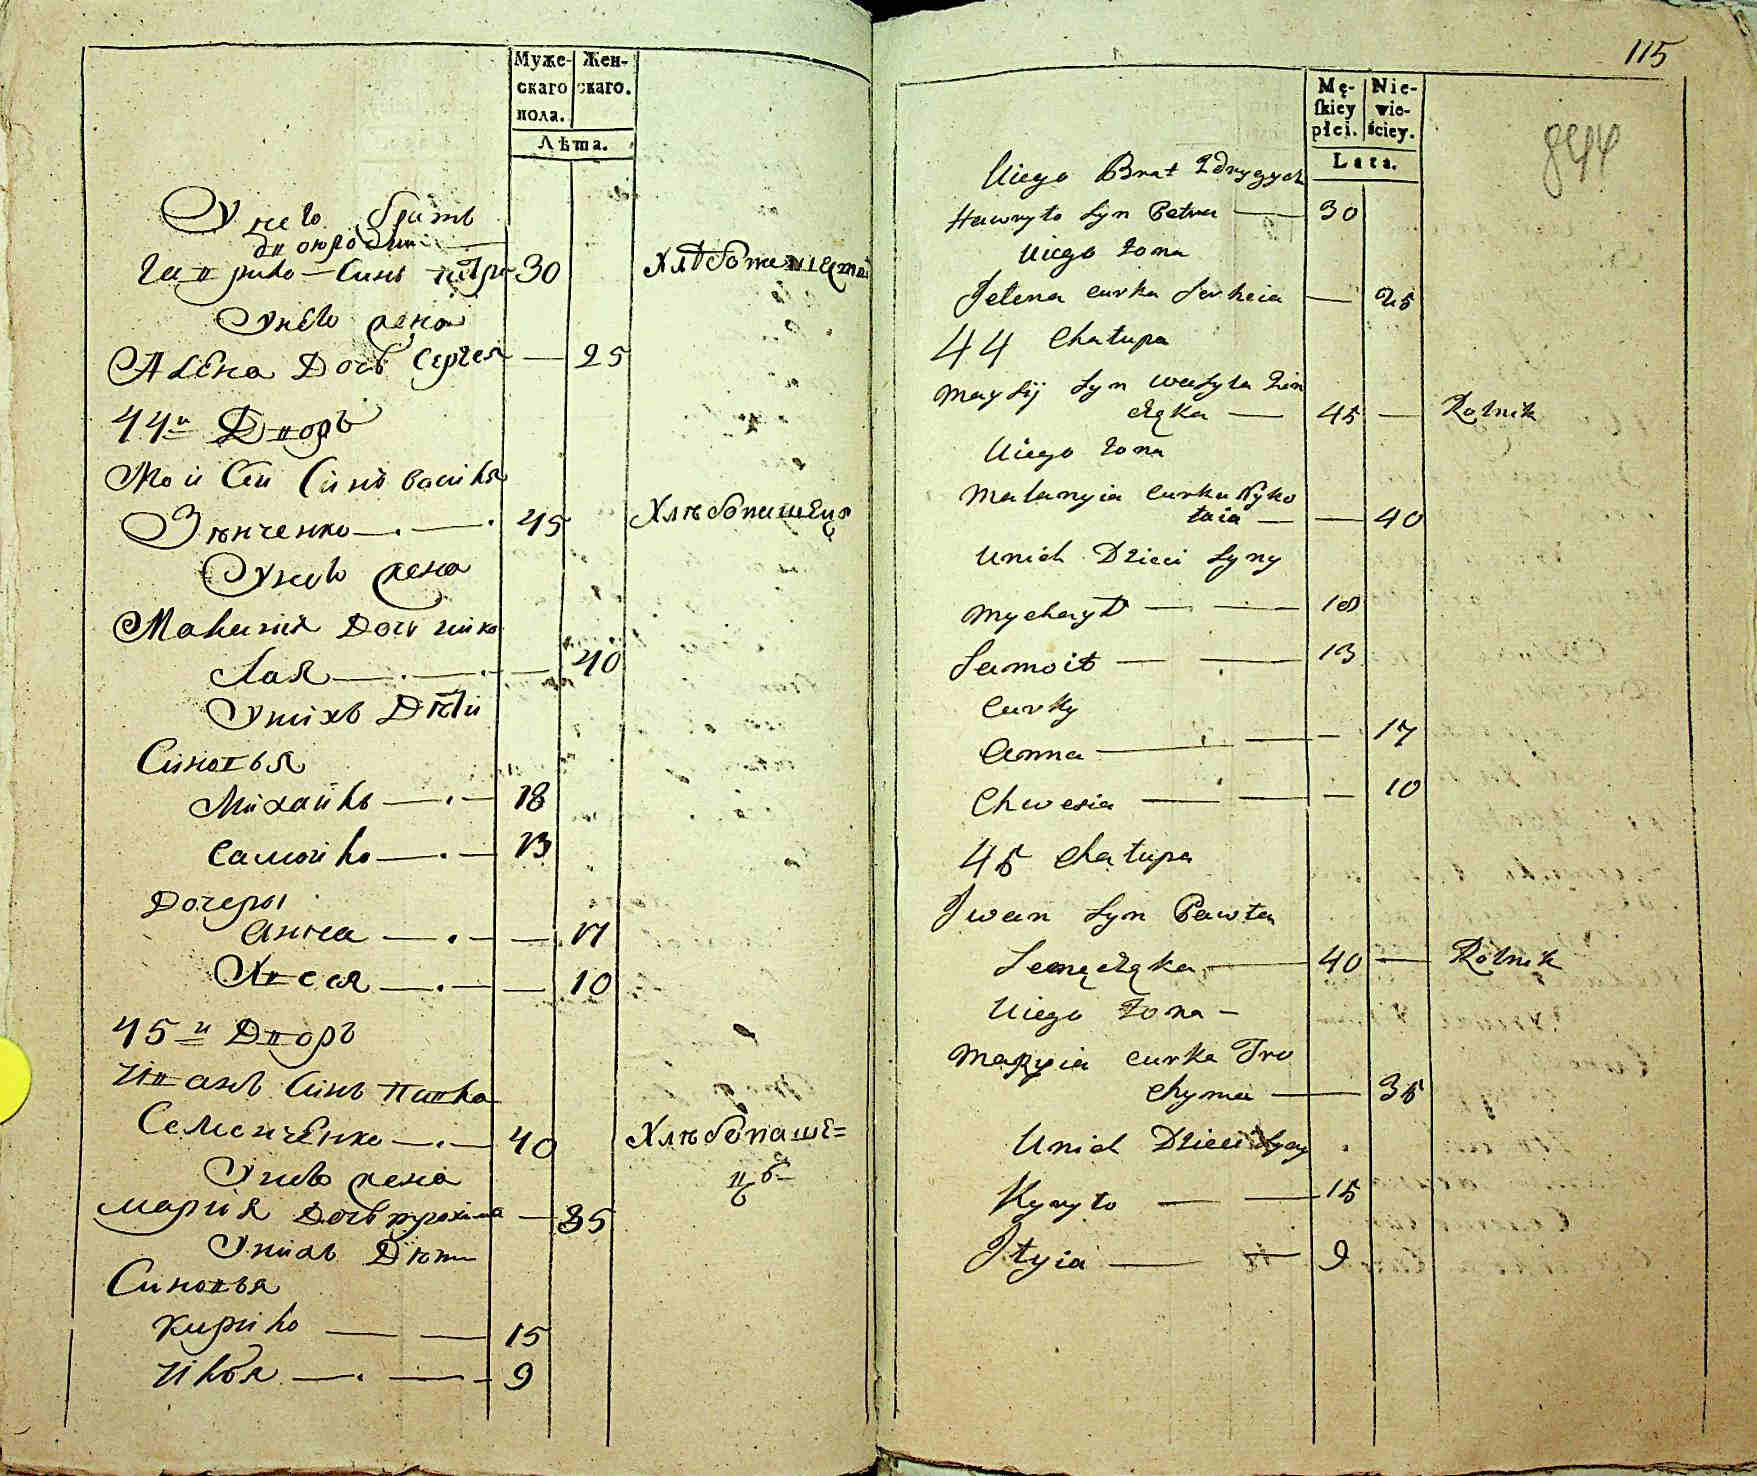 Муже-
скаго
пола.
Жен-
скаго.
Лѣта.
У него братъ
двоюродни
Гаврило — Синъ Петра — 30 Хлѣбопашецъ
У него жена
Алена Дочь Сергея — 25
44й Дворъ
Мойсей Синъ Василя
Зѣнченко — 45 Хлѣбопашецъ
У него жена
Маланія Дочь Нико
лая — 40
У нихъ Дѣти
Синовья
Михайло — 18
Самойло — 13
Дочеры
Анна — 17
Хвеся — 10
45й Дворъ
Иванъ Синъ Павла
Семенченко — 40 Хлѣбопаше=
цъ
У него жена
Мария Дочь Трохима — 35
У нихъ Дѣти
Синовья
Кирило — 15
Илья — 9
115
844
Mę-
ſkiey
płci.
Nie-
wie-
ściey.
Lata.
Uiego Brat
Hawryło Syn Petra — 30
Uiego Zona
Jelena curka Serheia — 25
44 Chałupa
Maysij Syn Wasyla Zin
częka — 45 — Rolnik
Uiego Zona
Malanyia curka Nyko
łaia — 40
Unich Dzieci Syny
Mychayło — 18
Samoiło — 13
Curky
Anna — 17
Chwesia — 10
45 Chałupa
Jwan Syn Pawła
Semęczęka — 40 — Rolnik
Uiego Zona —
Maryia curka Tro
chyma — 35
Unich Dzieci Syny
Kyryło — 15
Jłyia — 9